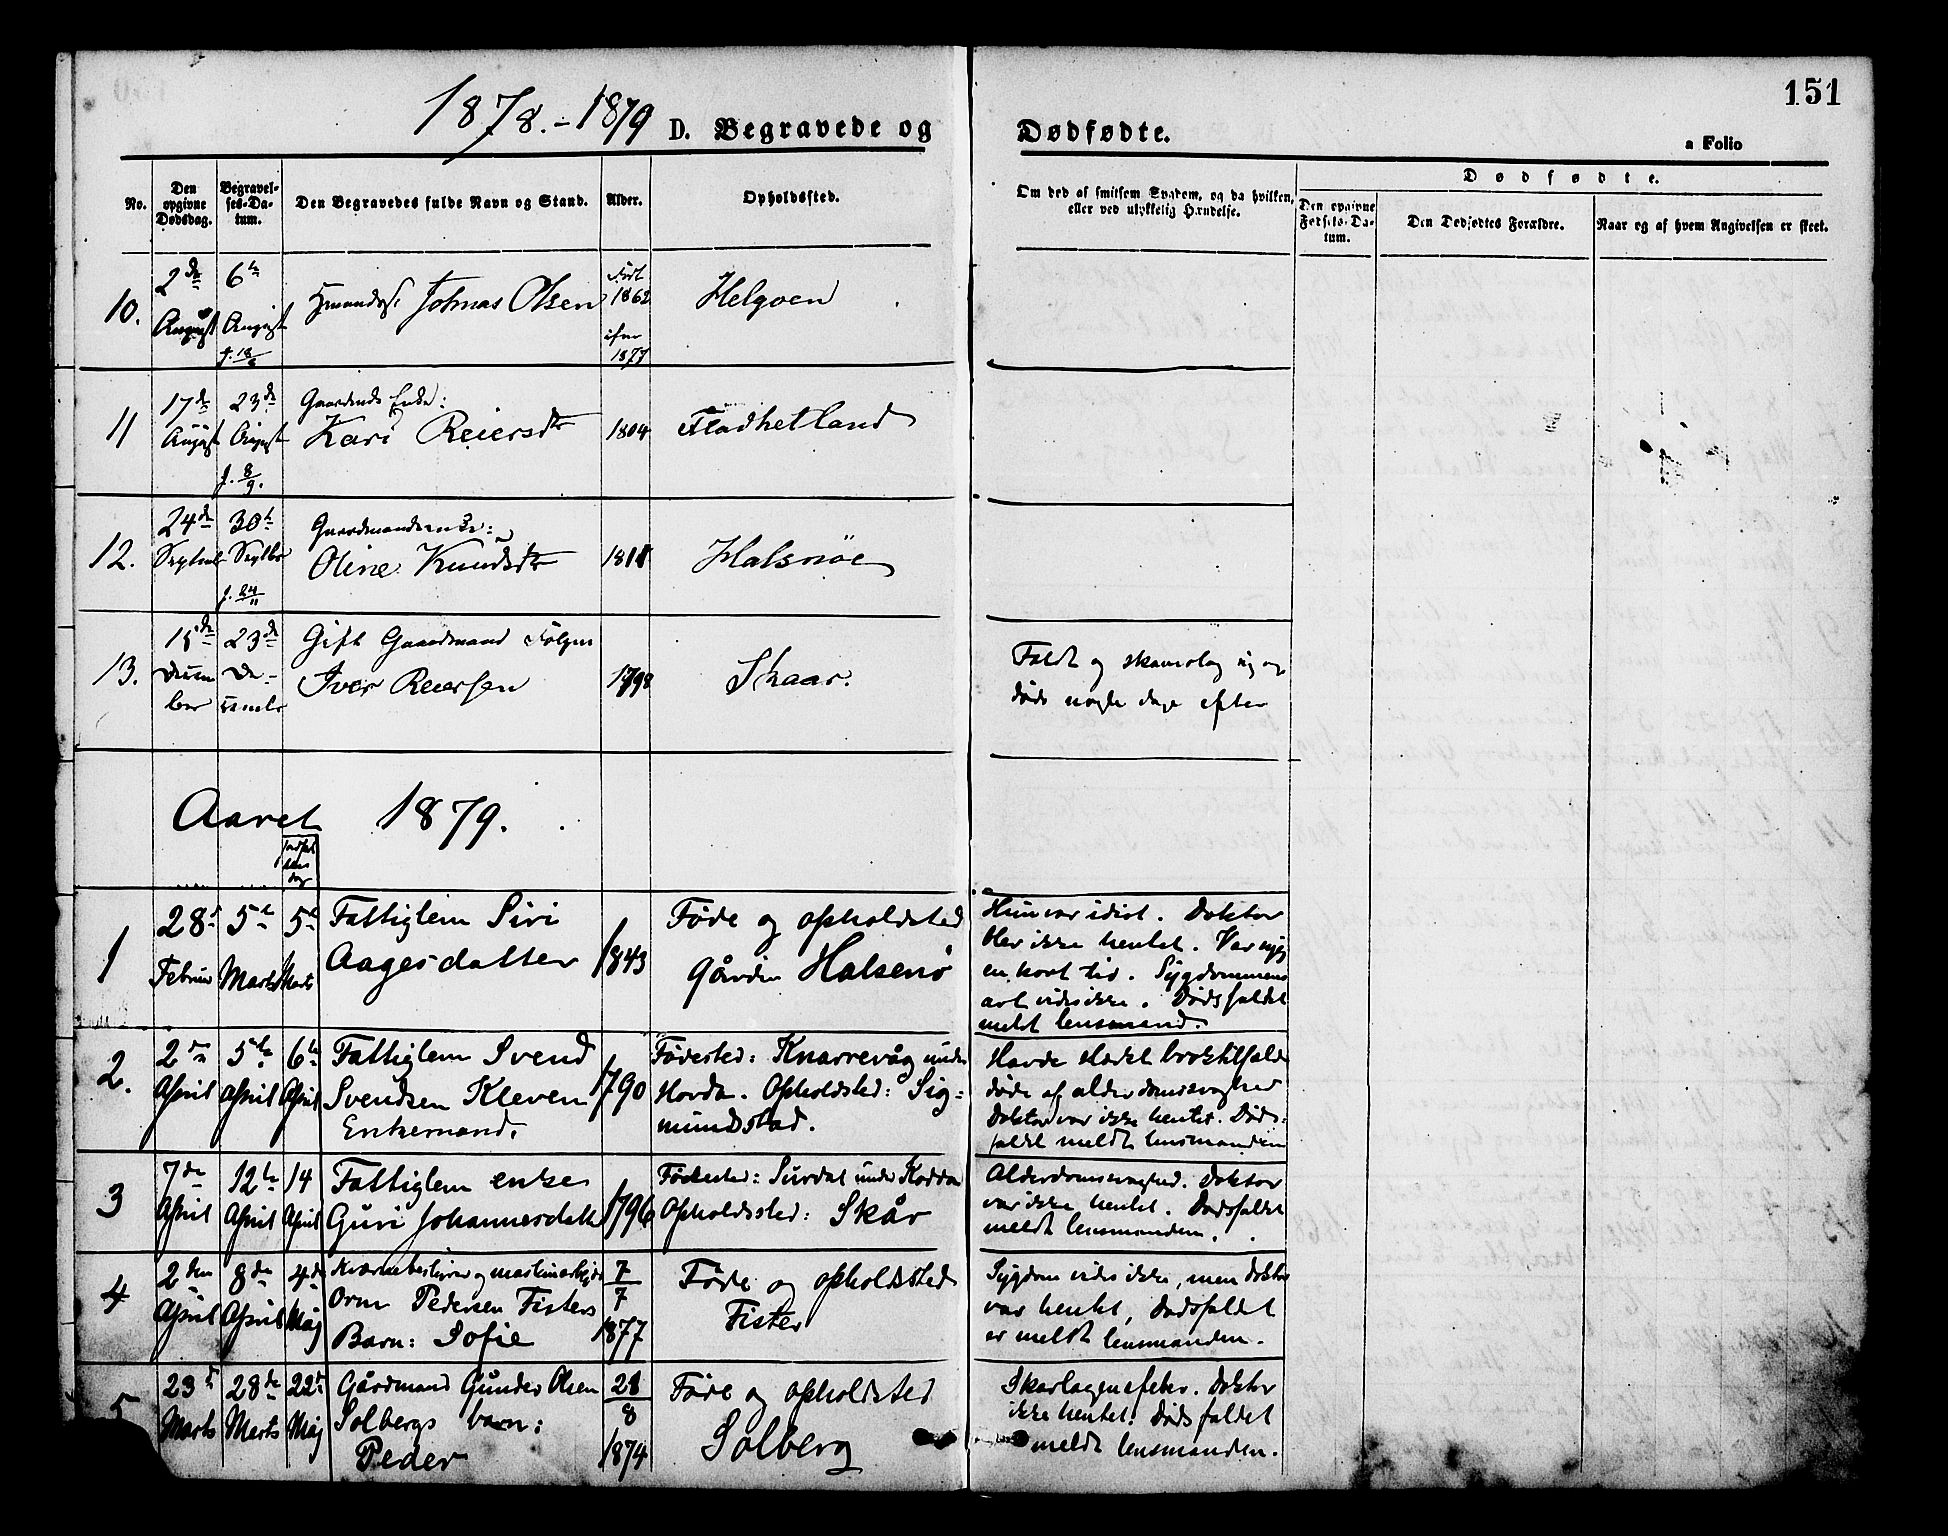 151
1878.-1879 D. Begravede og Dødfødte.
a Folio
No.
Den opgivne Dødsdag.
Begravelses-Datum.
Den Begravedes fulde Navn og Stand.
Alder.
Opholdssted.
Om død af smitsom Sygdom, og da hvilken,
eller ved ulykkelig Hændelse.
Dødfødte.
Den opgivne Fødsels-Datum.
Den Dødfødtes Forældre.
Naar og af hvem Angivelsen er skeet.
10.
2den August
6te August
f. 18/8
Johnas Olsen
Født 1862
1877
Helgoen
11
17de August
23de August
f. 8/9.
Gaardmds Enke:
Kari Reiersdtr
1804
Fladhetland
12.
24de Septembr
30te Septbr
f. 24/11
Gaardmandsenke:
Oline Knudsdtr
1811
Halsnøe
13.
15de December
23de December
Gift Gaardmand
Iver Reiersen
1798
Skaar.
Faldt og skamslog sig og
døde nogle dage efter
Aaret 1879.
1
28de Februar
5te Marts
5te Marts
Fattiglem Siri
Aagesdatter
1843
Føde og opholdsted
gården Halsenø
Hun var idiot. Doktor
blev ikke hentet. Var syg
en kort tid. Sygdommens
art vides ikke. Dødsfaldet
meldt lensmand.
2.
2den April
5te April
6te April
Fattiglem Svend
Svendsen Kleven
Enkemand.
1790
Fødested: Knarrevåg under
Hovda. Opholdsted: Sig-
mundstad.
Havde stedet broktilfælde
døde af alderdomssvaghed
Doktor var ikke hentet. Døds-
faldet meldt lensmanden
3
7de April
12te April
14 April
Fattiglem enke
Guri Johannesdatter
1796
Fødested: Surdal under
Opholdssted: Skår
Alderdomssvaghed. Doktor
var ikke hentet. Dødsfaldet
meldt lensmanden.
4
2den April
8de April
4de Maj
og maskinarbejder
Orm Pedersen Fisters
Barn: Sofie
7/7 1877
Føde og opholdssted
Fister
Sygdom vides ikke, men doktor
var hentet, Dødsfaldet
er meldt lensmanden.
5
23de Marts
28de Marts
22de Maj
Gårdmand Gunder Olsen
Solbergs barn:
Peder
28/8 1874
Føde og opholdsted
Solberg
Skarlagensfeber. Doktor
ikke hentet. Dødsfaldet
meldt lensmanden.